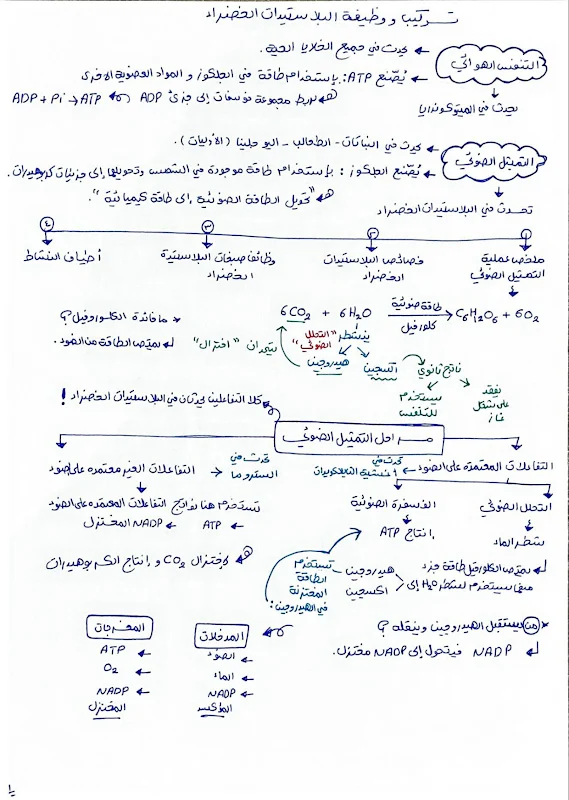 تركيب ووظيفة البلاستيدات الخضراء
التنفس الهوائي
← يحدث في جميع الخلايا الحية.
← يُصنع ATP: بإستخدام طاقة في الجلكوز و المواد العضوية الأخرى
يحدث في الميتوكندريا
نربط مجموعة فوسفات إلى جزئ ADP
ADP + Pi → ATP
التمثيل الضوئي
← يحدث في النباتات - الطحالب - اليوجلينا (الأوليات).
← يُصنع الجلكوز: بإستخدام طاقة موجودة في الشمس وتحويلها إلى جزيئات كربوهيدرات.
"تحويل الطاقة الضوئية إلى طاقة كيميائية".
تحدث في البلاستيدات الخضراء
١ ٢ ٣ ٤
ملخص عملية التمثيل الضوئي
خصائص البلاستيدات الخضراء
وظائف صبغات البلاستيدة الخضراء
أطياف النشاط
6CO₂ + 6H₂O → C₆H₁₂O₆ + 6O₂
طاقة ضوئية
كلورفيل
* ما فائدة الكلوروفيل؟
↲ يمتص الطاقة من الضوء.
ينشطر "التحلل الضوئي"
يتحدان "اختزال"
هيدروجين
اكسجين
ناتج ثانوي
يستخدم للتنفس
يفقد على شكل غاز
كلا التفاعلين يحدثان في البلاستيدات الخضراء!
مراحل التمثيل الضوئي
التفاعلات المعتمده على الضوء
تحدث في أغشية الثايلاكويدات
التفاعلات الغير معتمده على الضوء
تحدث في الستروما
التحلل الضوئي
شطر الماء
الفسفرة الضوئية
إنتاج ATP
تستخدم هنا نواتج التفاعلات المعتمده على الضوء
← ATP ← NADP المختزل
لإختزال CO₂ و إنتاج الكربوهيدرات
↲ يمتص الكلورفيل طاقة جزء منها يستخدم لشطر H₂O إلى
هيدروجين
اكسجين
تستخدم الطاقة المختزنة في الهيدروجين:
* من يستقبل الهيدروجين وينقله؟
↲ NADP فيتحول إلى NADP مختزل.
المدخلات
← الضوء
← الماء
← NADP المؤكسد
المخرجات
← ATP
← O₂
← NADP المختزل